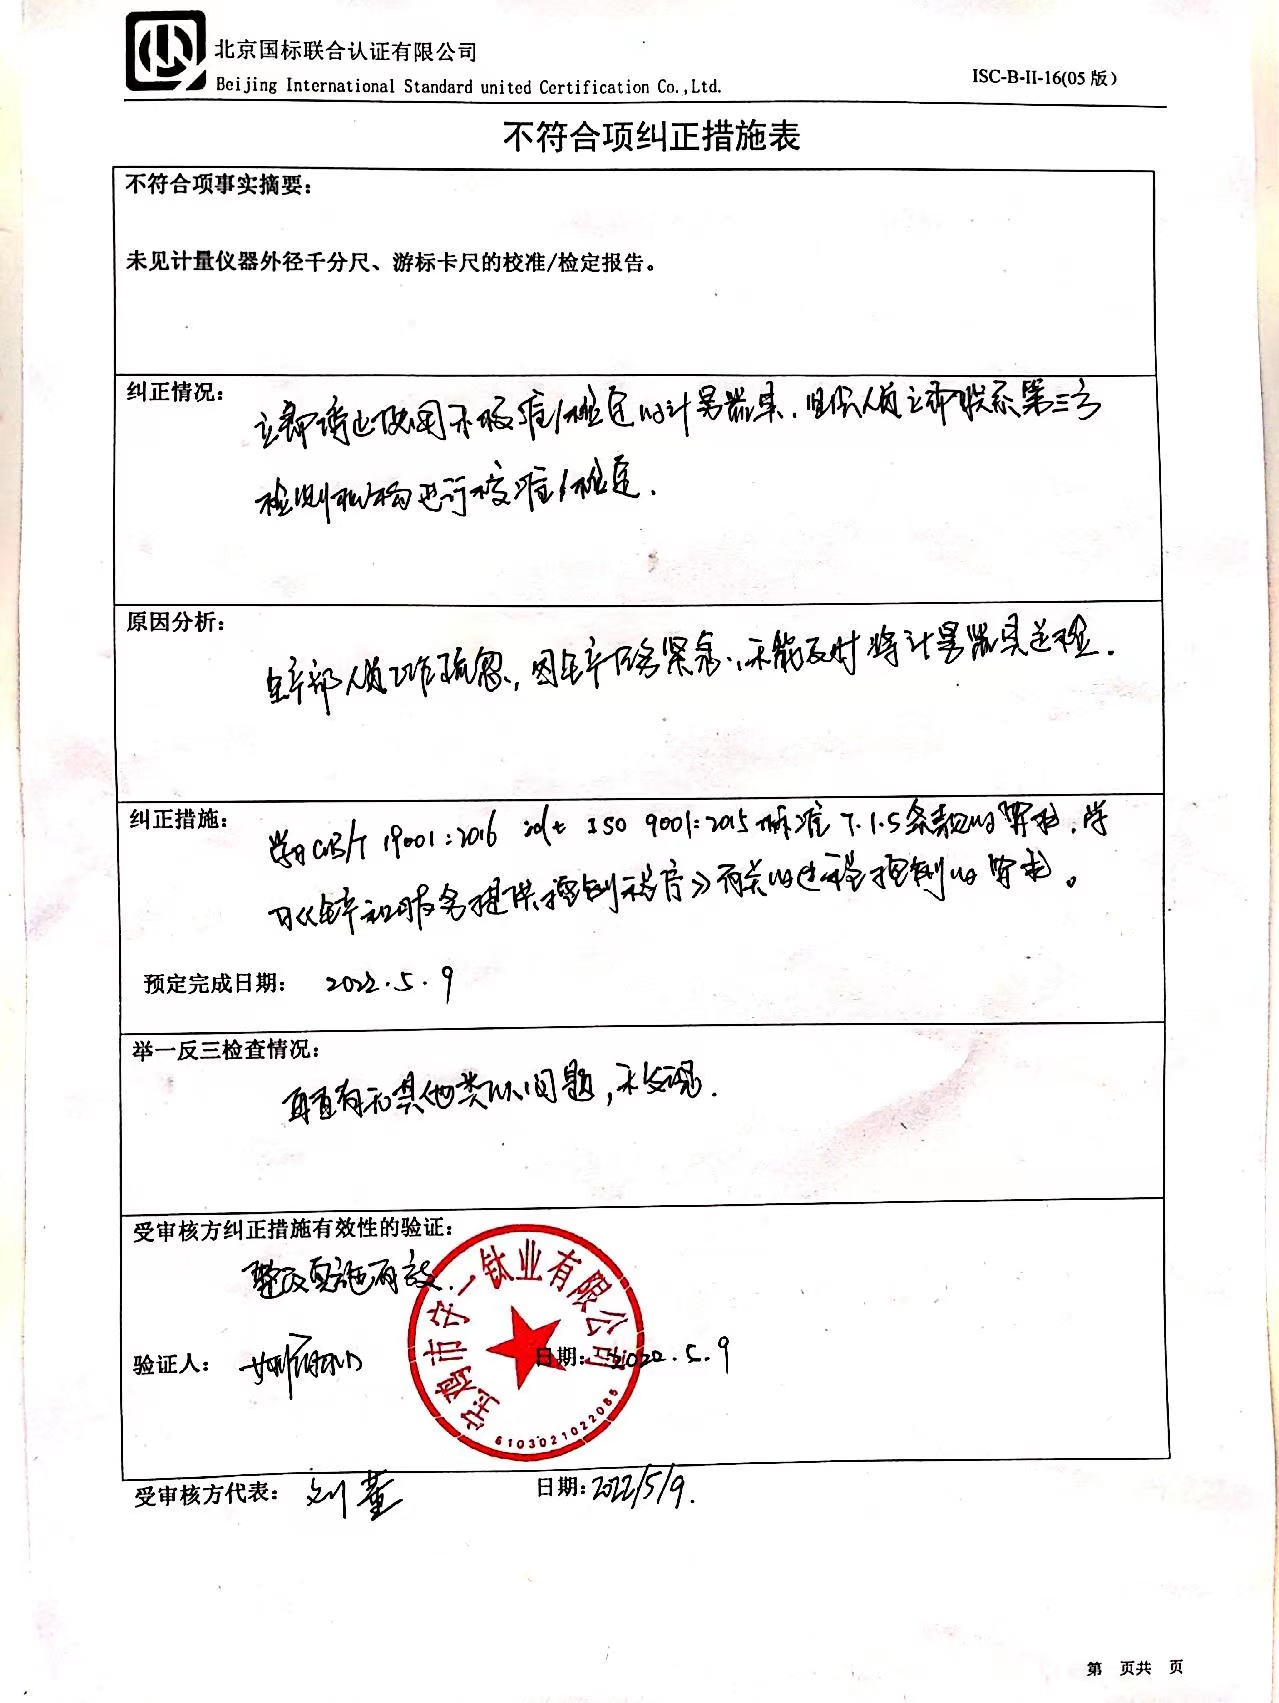 北京国标联合认证有限公司
Beijing International Standard united Certification Co.,Ltd.
ISC-B-II-16(05 版)
不符合项纠正措施表
不符合项事实摘要：
未见计量仪器外径千分尺、游标卡尺的校准/检定报告。
纠正情况：
立即停止使用未校准/检定的计量器具，组织人员立即联系第三方
检测机构进行校准/检定.
原因分析：
生产部人员工作疏忽，因生产任务紧急，未能及时将计量器具送检.
纠正措施：
学习GB/T 19001:2016 idt ISO 9001:2015标准7.1.5条款的要求，学
习《生产和服务提供控制程序》有关的过程控制的要求。
预定完成日期： 2022.5.9
举一反三检查情况：
再查有无其他类似问题，未发现.
受审核方纠正措施有效性的验证：
整改实施有效.
宝鸡市宁一钛业有限公司
6103021022085
验证人：
日期：2022.5.9
受审核方代表： 刘董
日期：2022/5/9.
第 页共 页